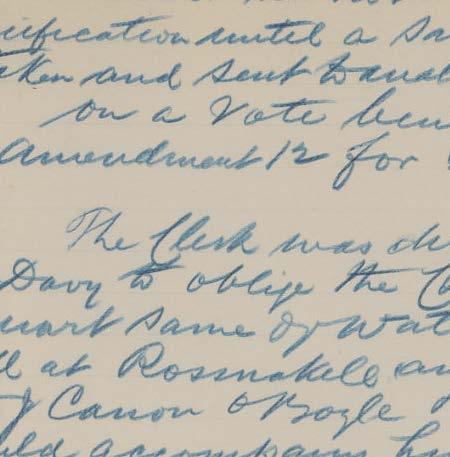 ification until a Sa
ken and sent to anal
on a vote bein
Amendment 12 for
The Clerk was di
Davy to oblige the C
uart same of Wat
ll at Rosmakell an
J Canon O'Boyle
uld accompany hi